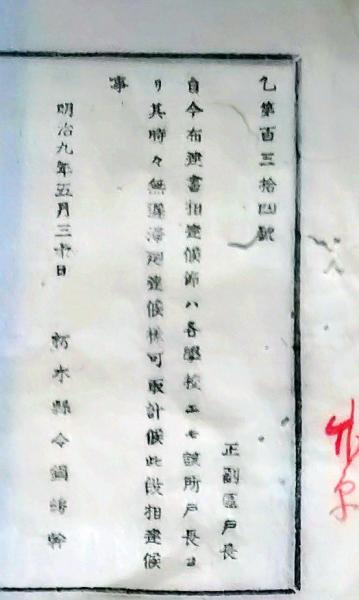 乙第百三拾四號
正副區戸長
自今布達書相達候節ハ各學校エモ該所戸長ヨ
リ其時々無遲滞廻達候様可取計候此段相達候
事
明治九年五月三十日　栃木縣令鍋島幹